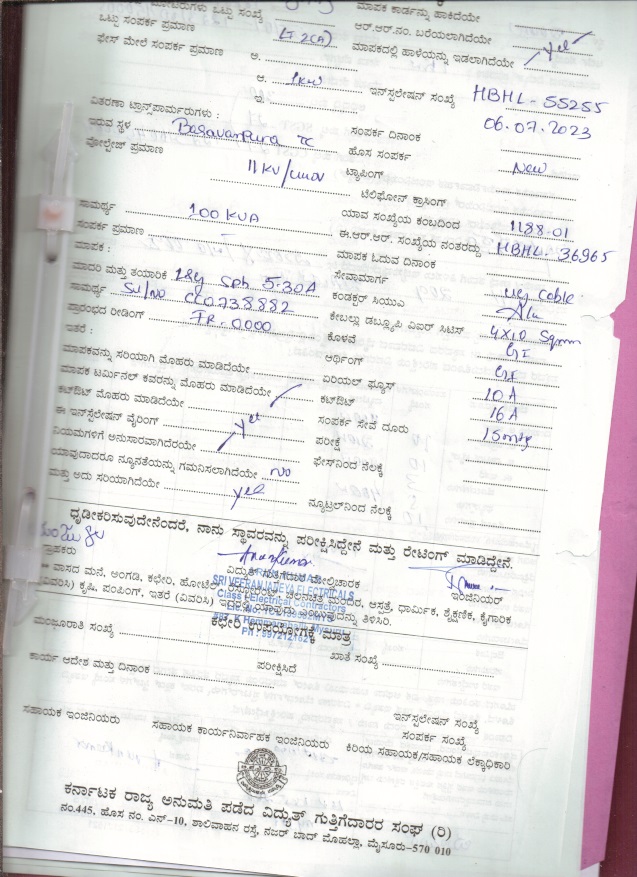 ಒಟ್ಟು ಸಂಖ್ಯೆ ಮಾಪಕ ಕಾರ್ಡನ್ನು ಹಾಕಿದೆಯೇ
ಒಟ್ಟು ಸಂಪರ್ಕ ಪ್ರಮಾಣ LT 2(A) ಆರ್.ಆರ್.ನಂ. ಬರೆಯಲಾಗಿದೆಯೇ
ಫೇಸ್ ಮೇಲೆ ಸಂಪರ್ಕ ಪ್ರಮಾಣ ಅ. ಮಾಪಕದಲ್ಲಿ ಹಾಳೆಯನ್ನು ಇಡಲಾಗಿದೆಯೇ Yes
ಆ. 1KW ಇನ್‌ಸ್ಟಲೇಷನ್ ಸಂಖ್ಯೆ HBHL-55255
ಇ.
ವಿತರಣಾ ಟ್ರಾನ್ಸ್‌ಫಾರ್ಮರುಗಳು : ಸಂಪರ್ಕ ದಿನಾಂಕ 06.07.2023
ಇರುವ ಸ್ಥಳ Basavanpura TC ಹೊಸ ಸಂಪರ್ಕ New
ವೋಲ್ಟೇಜ್ ಪ್ರಮಾಣ 11KV/ ಟ್ಯಾಪಿಂಗ್
ಟೆಲಿಫೋನ್ ಕ್ರಾಸಿಂಗ್
ಸಾಮರ್ಥ್ಯ 100 KVA ಯಾವ ಸಂಖ್ಯೆಯ ಕಂಬದಿಂದ 1188-01
ಸಂಪರ್ಕ ಪ್ರಮಾಣ ಈ.ಆರ್.ಆರ್. ಸಂಖ್ಯೆಯ ನಂತರದ್ದು HBHL-36965
ಮಾಪಕ : ಮಾಪಕ ಓದುವ ದಿನಾಂಕ
ಮಾದರಿ ಮತ್ತು ತಯಾರಿಕೆ L&G Sph 5-30A ಸೇವಾಮಾರ್ಗ UG Cable
ಸಾಮರ್ಥ್ಯ Sl/No CC0738882 ಕಂಡಕ್ಟರ್ ಸಿಯುಎ Alu
ಪ್ರಾರಂಭದ ರೀಡಿಂಗ್ IR-0000 ಕೇಬಲ್ಲು ಡಬ್ಲ್ಯೂಪಿ ವಿಐಆರ್ ಸಿಟಿಸ್ 4X10 Sqmm
ಇತರೆ : ಕೊಳವೆ GI
ಮಾಪಕವನ್ನು ಸರಿಯಾಗಿ ಮೊಹರು ಮಾಡಿದೆಯೇ ಅರ್ಥಿಂಗ್ GI
ಮಾಪಕ ಟರ್ಮಿನಲ್ ಕವರನ್ನು ಮೊಹರು ಮಾಡಿದೆಯೇ ಏರಿಯಲ್ ಫ್ಯೂಸ್ 10A
ಕಟ್‌ಔಟ್ ಮೊಹರು ಮಾಡಿದೆಯೇ ಕಟ್‌ಔಟ್ 16A
ಈ ಇನ್‌ಸ್ಟಲೇಷನ್ ವೈರಿಂಗ್ Yes ಸಂಪರ್ಕ ಸೇವೆ ದೂರು 15mtr
ನಿಯಮಗಳಿಗೆ ಅನುಸಾರವಾಗಿದೆರಯೇ ಪರೀಕ್ಷೆ
ಯಾವುದಾದರೂ ನ್ಯೂನತೆಯನ್ನು ಗಮನಿಸಲಾಗಿದೆಯೇ No ಫೇಸ್‌ನಿಂದ ನೆಲಕ್ಕೆ
ಮತ್ತು ಅದು ಸರಿಯಾಗಿದೆಯೇ Yes ನ್ಯೂಟ್ರಲ್‌ನಿಂದ ನೆಲಕ್ಕೆ
ಧೃಡೀಕರಿಸುವುದೇನೆಂದರೆ, ನಾನು ಸ್ಥಾವರವನ್ನು ಪರೀಕ್ಷಿಸಿದ್ದೇನೆ ಮತ್ತು ರೇಟಿಂಗ್ ಮಾಡಿದ್ದೇನೆ.
ವಿದ್ಯುತ್ ಗುತ್ತಿಗೆದಾರ ಮೇಲ್ವಿಚಾರಕ ಇಂಜಿನಿಯರ್
SRI VEERANJANEYA ELECTRICALS
Class I Electrical Contractors
ವಾಸದ ಮನೆ, ಅಂಗಡಿ, ಕಛೇರಿ, ಮಂದಿರ, ಆಸ್ಪತ್ರೆ, ಧಾರ್ಮಿಕ, ಶೈಕ್ಷಣಿಕ, ಕೈಗಾರಿಕ
ಕೃಷಿ, ಪಂಪಿಂಗ್, ಇತರೆ (ವಿವರಿಸಿ) ತಿಳಿಸಿರಿ.
ಕಛೇರಿ ಉಪಯೋಗಕ್ಕೆ ಮಾತ್ರ
ಮಂಜೂರಾತಿ ಸಂಖ್ಯೆ ಖಾತೆ ಸಂಖ್ಯೆ
ಕಾರ್ಯ ಆದೇಶ ಮತ್ತು ದಿನಾಂಕ ಪರೀಕ್ಷಿಸಿದೆ
ಇನ್‌ಸ್ಟಲೇಷನ್ ಸಂಖ್ಯೆ
ಸಂಪರ್ಕ ಸಂಖ್ಯೆ
ಸಹಾಯಕ ಇಂಜಿನಿಯರು ಸಹಾಯಕ ಕಾರ್ಯನಿರ್ವಾಹಕ ಇಂಜಿನಿಯರು ಕಿರಿಯ ಸಹಾಯಕ/ಸಹಾಯಕ ಲೆಕ್ಕಾಧಿಕಾರಿ
ಕರ್ನಾಟಕ ರಾಜ್ಯ ಅನುಮತಿ ಪಡೆದ ವಿದ್ಯುತ್ ಗುತ್ತಿಗೆದಾರರ ಸಂಘ (ರಿ)
ನಂ.445, ಹೊಸ ನಂ. ಎನ್-10, ಶಾಲಿವಾಹನ ರಸ್ತೆ, ನಜರ್ ಬಾದ್ ಮೊಹಲ್ಲಾ, ಮೈಸೂರು-570 010